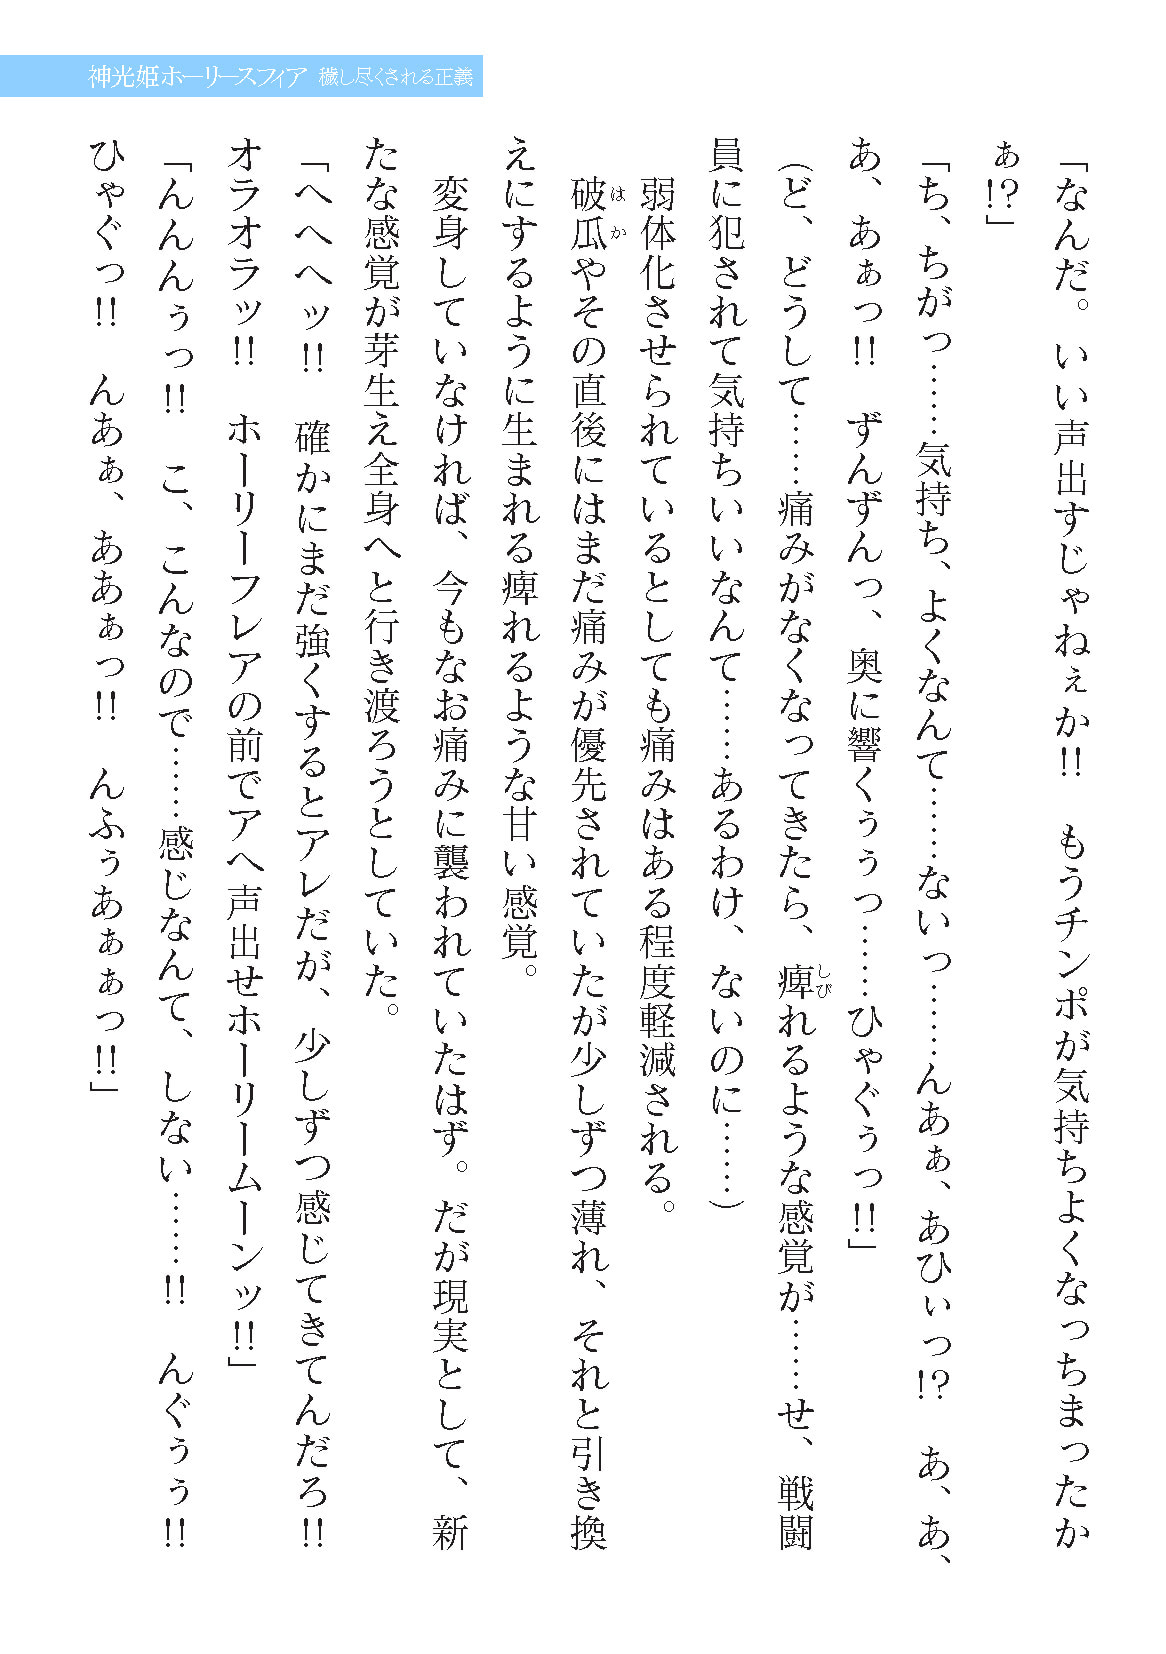 神光姫ホーリースフィア 穢し尽くされる正義
「なんだ。いい声出すじゃねぇか!!　もうチンポが気持ちよくなっちまったか
ぁ!?」
「ち、ちがっ……気持ち、よくなんて……ないっ……んあぁ、あひぃっ!?　あ、あ、
あ、あぁっ!!　ずんずんっ、奥に響くぅぅっ……ひゃぐぅっ!!」
（ど、どうして……痛みがなくなってきたら、痺れるような感覚が……せ、戦闘
員に犯されて気持ちいいなんて……あるわけ、ないのに……）
　弱体化させられているとしても痛みはある程度軽減される。
　破瓜やその直後にはまだ痛みが優先されていたが少しずつ薄れ、それと引き換
えにするように生まれる痺れるような甘い感覚。
　変身していなければ、今もなお痛みに襲われていたはず。だが現実として、新
たな感覚が芽生え全身へと行き渡ろうとしていた。
「へへへッ!!　確かにまだ強くするとアレだが、少しずつ感じてきてんだろ!!
オラオラッ!!　ホーリーフレアの前でアヘ声出せホーリームーンッ!!」
「んんんぅっ!!　こ、こんなので……感じなんて、しない……!!　んぐぅぅ!!
ひゃぐっ!!　んあぁ、ああぁっ!!　んふぅあぁぁっ!!」